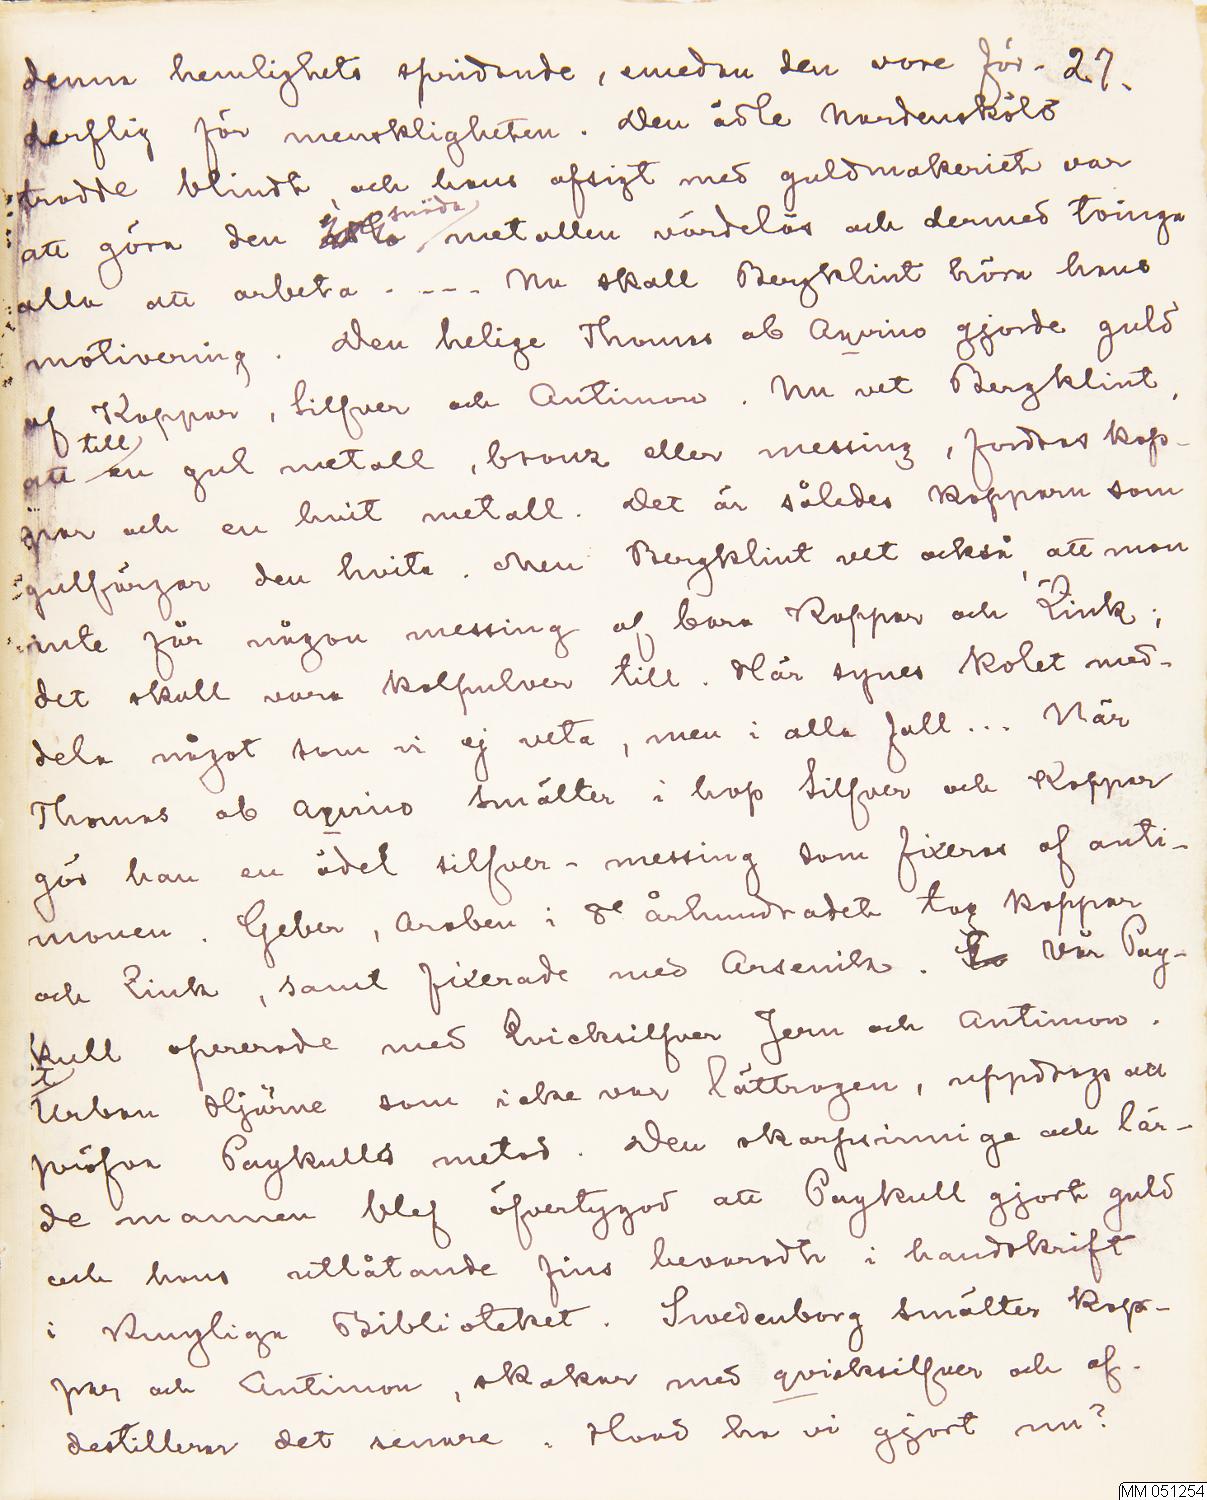 denna hemlighets spridande, emedan den vore för- 27.
derflig för menskligheten. Den ädle Nordensköld
trodde blindt, och hans afsigt med guldmakeriet var
att göra den snöda metallen värdelös och dermed tvinga
alla att arbeta. --- Nu skall Bergklint höra hans
motivering. Den helige Thomas ab Aqvino gjorde guld
af Koppar, Silfver och Antimon. Nu vet Bergklint,
att till en gul metall, bronz eller messing, fordras kop-
par och en hvit metall. Det är således kopparn som
gulfärgar den hvita. Men Bergklint vet också, att man
inte får någon messing af bara Koppar och Zink;
det skall vara kolpulver till. Här synes kolet med-
dela något som vi ej veta, men i alla fall... När
Thomas ab Aqvino smälter i hop Silfver och Koppar
gör han en ädel silfver-messing som fixeras af anti-
monen. Geber, Araben i 8e århundradet tog koppar
och Zink, samt fixerade med Arsenik. Vår Pay-
kull opererade med Qvicksilfver Jern och Antimon.
Urban Hjärne som icke var lättrogen, uppdrogs att
pröfva Paykulls metod. Den skarpsinnige och lär-
de mannen blef öfvertygad att Paykull gjort guld
och hans utlåtande fins bevaradt i handskrift
i Kungliga Biblioteket. Swedenborg smälter kop-
par och Antimon, skakar med qvicksilfver och af-
destillerar det senare. Hvad ha vi gjort nu?
MM 051254